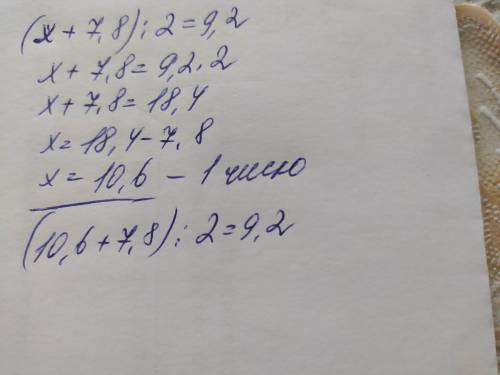 (x + 7,8) : 2 = 9,2
x + 7,8 = 9,2 · 2
x + 7,8 = 18,4
x = 18,4 - 7,8
x = 10,6 - 1 число
(10,6 + 7,8) : 2 = 9,2